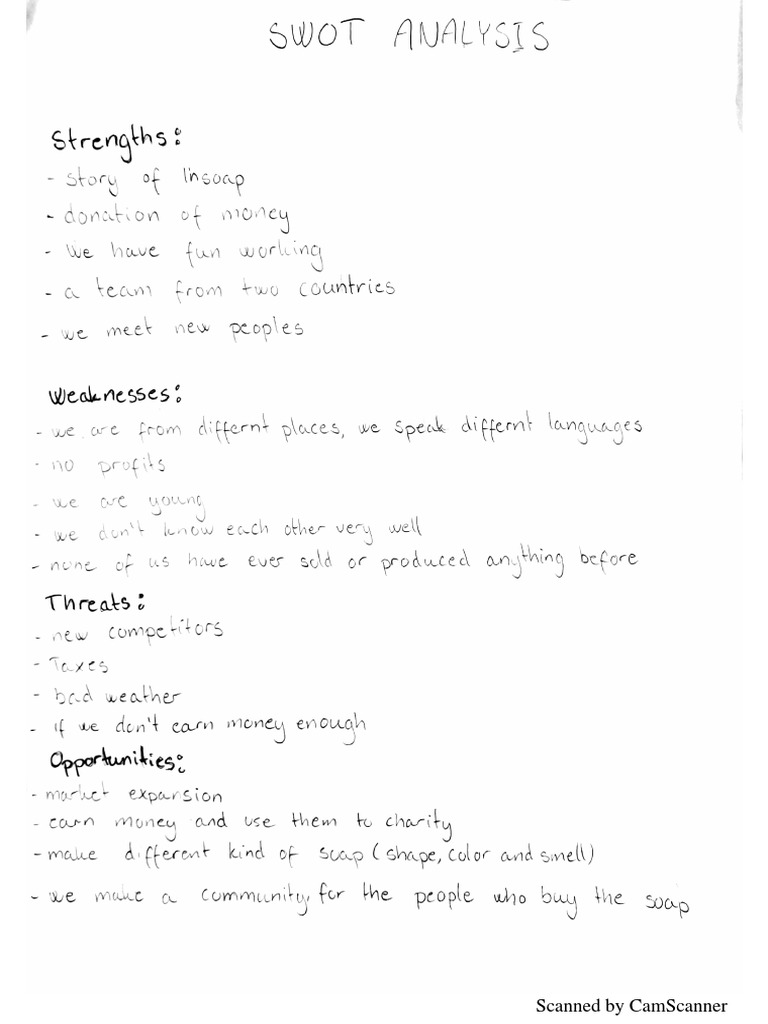 SWOT ANALYSIS
Strengths:
- story of Insoap
- donation of money
- We have fun working
- a team from two countries
- we meet new peoples
Weaknesses:
- we are from differnt places, we speak differnt languages
- no profits
- we are young
- we don't know each other very well
- none of us have ever sold or produced anything before
Threats:
- new competitors
- Taxes
- bad weather
- if we don't earn money enough
Opportunities:
- market expansion
- earn money and use them to charity
- make different kind of soap (shape, color and smell)
- we make a community, for the people who buy the soap
Scanned by CamScanner